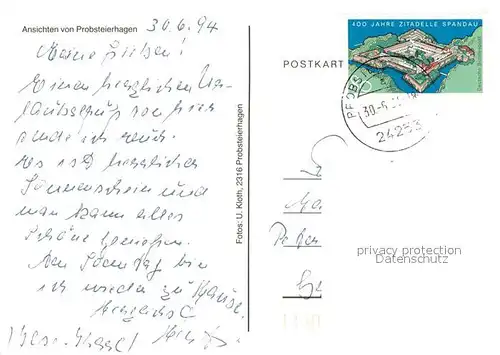 Ansichten von Probsteierhagen
30.6.94
Meine Lieben!
Einen herzlichen Ur-
laubsgruß von hier
sende ich euch.
Es ist herrlicher
Sonnenschein und
man kann alles
schöne genießen.
Am Sonntag bin
ich wieder zu Hause.
Herzlichst
Fotos: U. Kloth, 2316 Probsteierhagen
400 JAHRE ZITADELLE SPANDAU
Deutsche Bundespost
POSTKART
30.-6.
24253
privacy protection
Datenschutz